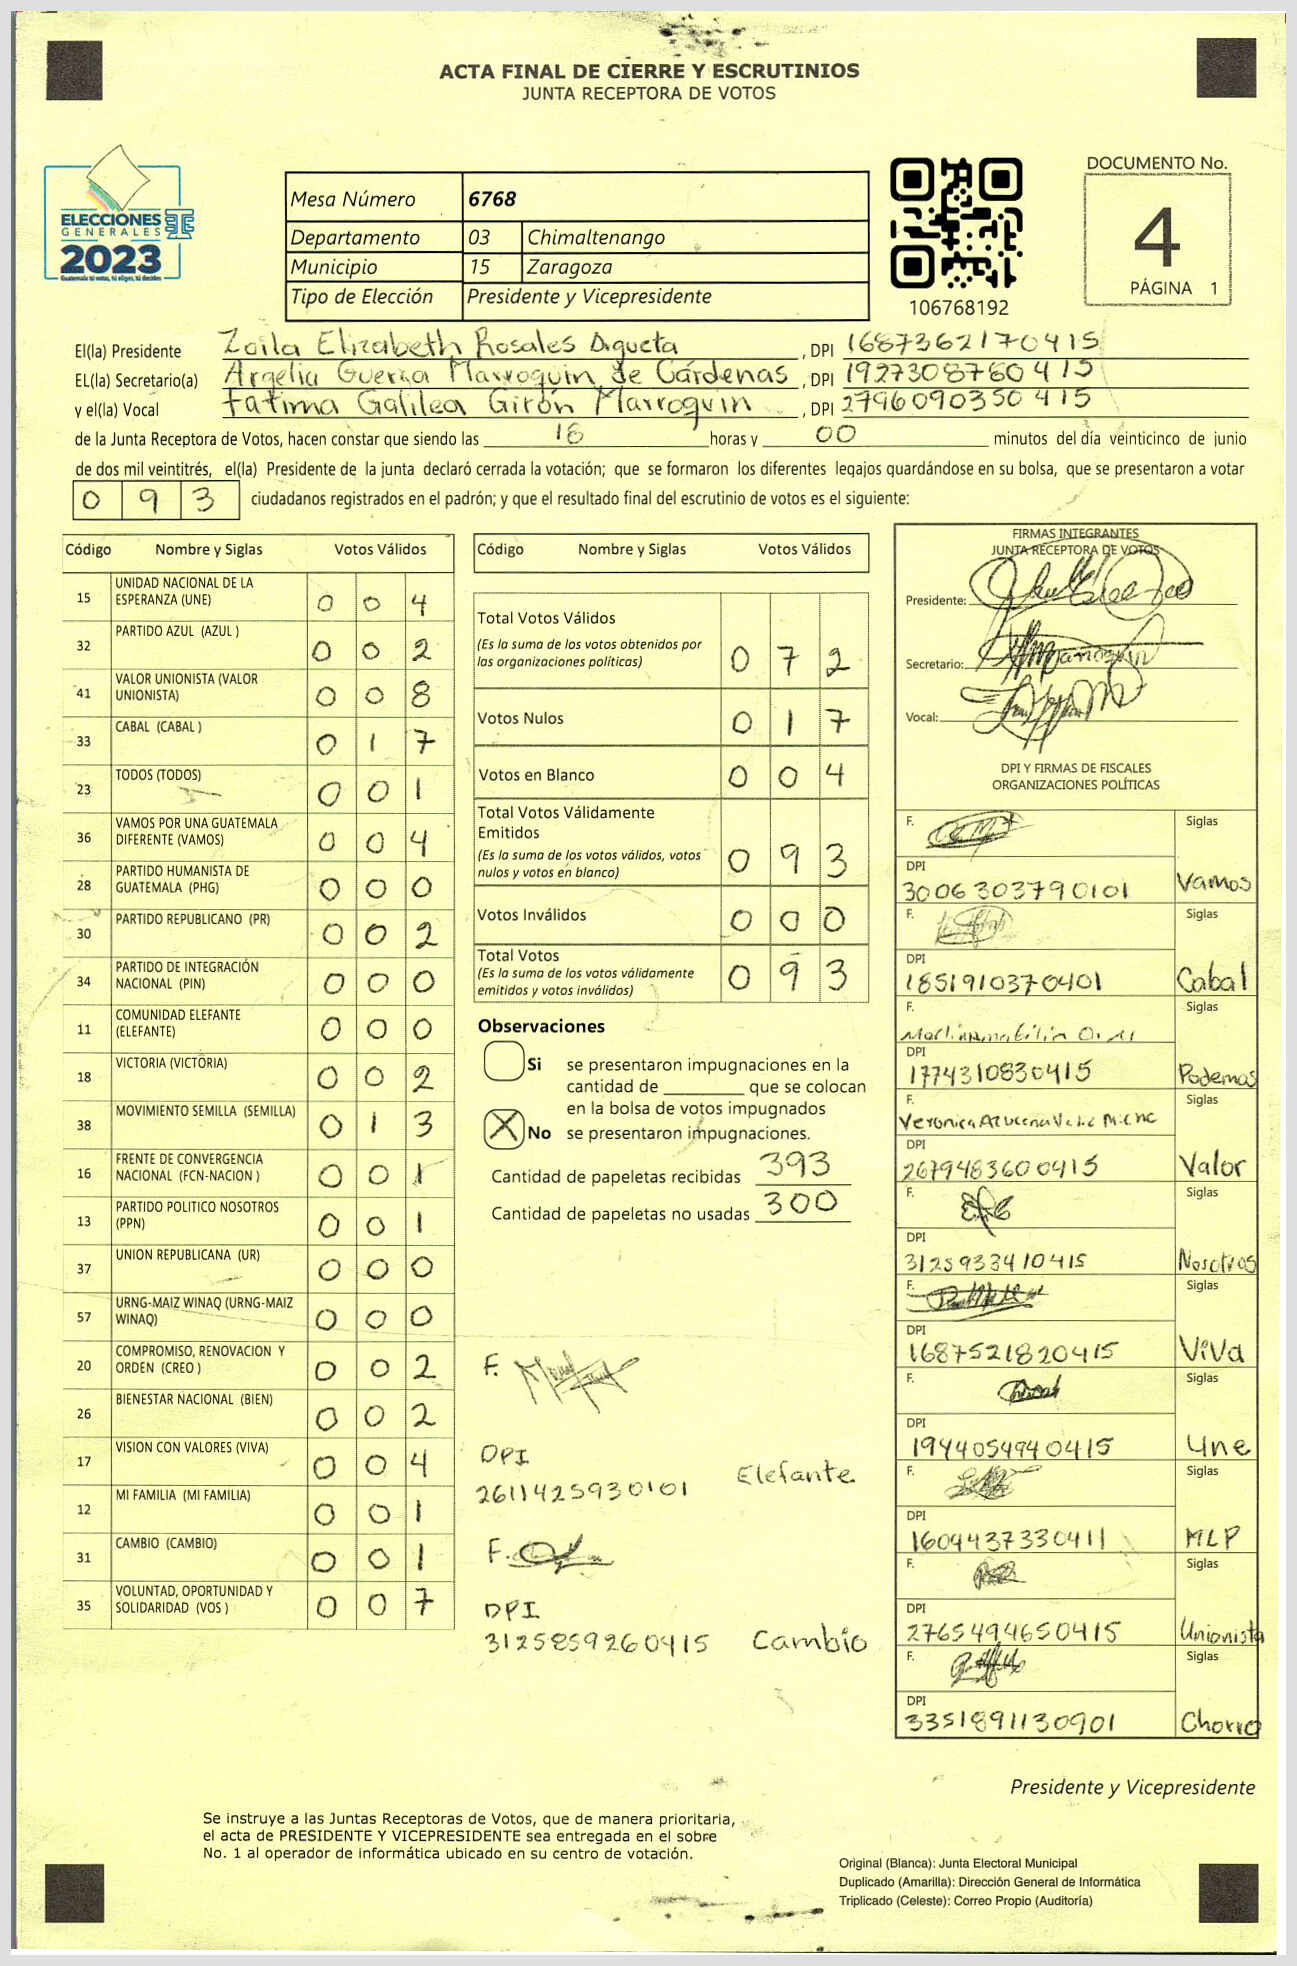 ACTA FINAL DE CIERRE Y ESCRUTINIOS
JUNTA RECEPTORA DE VOTOS
ELECCIONES
GENERALES
2023
Guatemala tú votas, tú eliges, tú decides
Mesa Número 6768
Departamento 03 Chimaltenango
Municipio 15 Zaragoza
Tipo de Elección Presidente y Vicepresidente
106768192
DOCUMENTO No.
4
PÁGINA 1
El(la) Presidente Zoila Elizabeth Rosales Digueta, DPI 1687362170415
EL(la) Secretario(a) Argelia Guerra Marroquin de Cárdenas, DPI 1927308760415
y el(la) Vocal Fatima Galilea Girón Marroquin, DPI 2796090350415
de la Junta Receptora de Votos, hacen constar que siendo las 18 horas y 00 minutos del día veinticinco de junio
de dos mil veintitrés, el(la) Presidente de la junta declaró cerrada la votación; que se formaron los diferentes legajos quardándose en su bolsa, que se presentaron a votar
0 9 3 ciudadanos registrados en el padrón; y que el resultado final del escrutinio de votos es el siguiente:
Código Nombre y Siglas Votos Válidos
15 UNIDAD NACIONAL DE LA ESPERANZA (UNE) 0 0 4
32 PARTIDO AZUL (AZUL ) 0 0 2
41 VALOR UNIONISTA (VALOR UNIONISTA) 0 0 8
33 CABAL (CABAL ) 0 1 7
23 TODOS (TODOS) 0 0 1
36 VAMOS POR UNA GUATEMALA DIFERENTE (VAMOS) 0 0 4
28 PARTIDO HUMANISTA DE GUATEMALA (PHG) 0 0 0
30 PARTIDO REPUBLICANO (PR) 0 0 2
34 PARTIDO DE INTEGRACIÓN NACIONAL (PIN) 0 0 0
11 COMUNIDAD ELEFANTE (ELEFANTE) 0 0 0
18 VICTORIA (VICTORIA) 0 0 2
38 MOVIMIENTO SEMILLA (SEMILLA) 0 1 3
16 FRENTE DE CONVERGENCIA NACIONAL (FCN-NACION ) 0 0 1
13 PARTIDO POLITICO NOSOTROS (PPN) 0 0 1
37 UNION REPUBLICANA (UR) 0 0 0
57 URNG-MAIZ WINAQ (URNG-MAIZ WINAQ) 0 0 0
20 COMPROMISO, RENOVACION Y ORDEN (CREO ) 0 0 2
26 BIENESTAR NACIONAL (BIEN) 0 0 2
17 VISION CON VALORES (VIVA) 0 0 4
12 MI FAMILIA (MI FAMILIA) 0 0 1
31 CAMBIO (CAMBIO) 0 0 1
35 VOLUNTAD, OPORTUNIDAD Y SOLIDARIDAD (VOS ) 0 0 7
Código Nombre y Siglas Votos Válidos
Total Votos Válidos
(Es la suma de los votos obtenidos por
las organizaciones políticas) 0 7 2
Votos Nulos 0 1 7
Votos en Blanco 0 0 4
Total Votos Válidamente
Emitidos
(Es la suma de los votos válidos, votos
nulos y votos en blanco) 0 9 3
Votos Inválidos 0 0 0
Total Votos
(Es la suma de los votos válidamente
emitidos y votos inválidos) 0 9 3
Observaciones
Si se presentaron impugnaciones en la
cantidad de ________ que se colocan
en la bolsa de votos impugnados
X No se presentaron impugnaciones.
Cantidad de papeletas recibidas 393
Cantidad de papeletas no usadas 300
F.
DPI
2611425930101 Elefante
F.
DPI
3125859260415 Cambio
FIRMAS INTEGRANTES
JUNTA RECEPTORA DE VOTOS
Presidente:
Secretario:
Vocal:
DPI Y FIRMAS DE FISCALES
ORGANIZACIONES POLÍTICAS
F. Siglas
DPI
3006303790101 Vamos
F. Siglas
DPI
1851910370401 Cabal
F. Siglas
DPI
1774310830415 Podemos
F. Siglas
Veronica Azucena
DPI
2679483600415 Valor
F. Siglas
DPI
3125933410415 Nosotros
F. Siglas
DPI
1687521820415 ViVa
F. Siglas
DPI
1944054940415 Une
F. Siglas
DPI
1604437330411 MLP
F. Siglas
DPI
2765494650415 Unionista
F. Siglas
DPI
3351891130901 Chorro
Presidente y Vicepresidente
Se instruye a las Juntas Receptoras de Votos, que de manera prioritaria,
el acta de PRESIDENTE Y VICEPRESIDENTE sea entregada en el sobre
No. 1 al operador de informática ubicado en su centro de votación.
Original (Blanca): Junta Electoral Municipal
Duplicado (Amarilla): Dirección General de Informática
Triplicado (Celeste): Correo Propio (Auditoría)